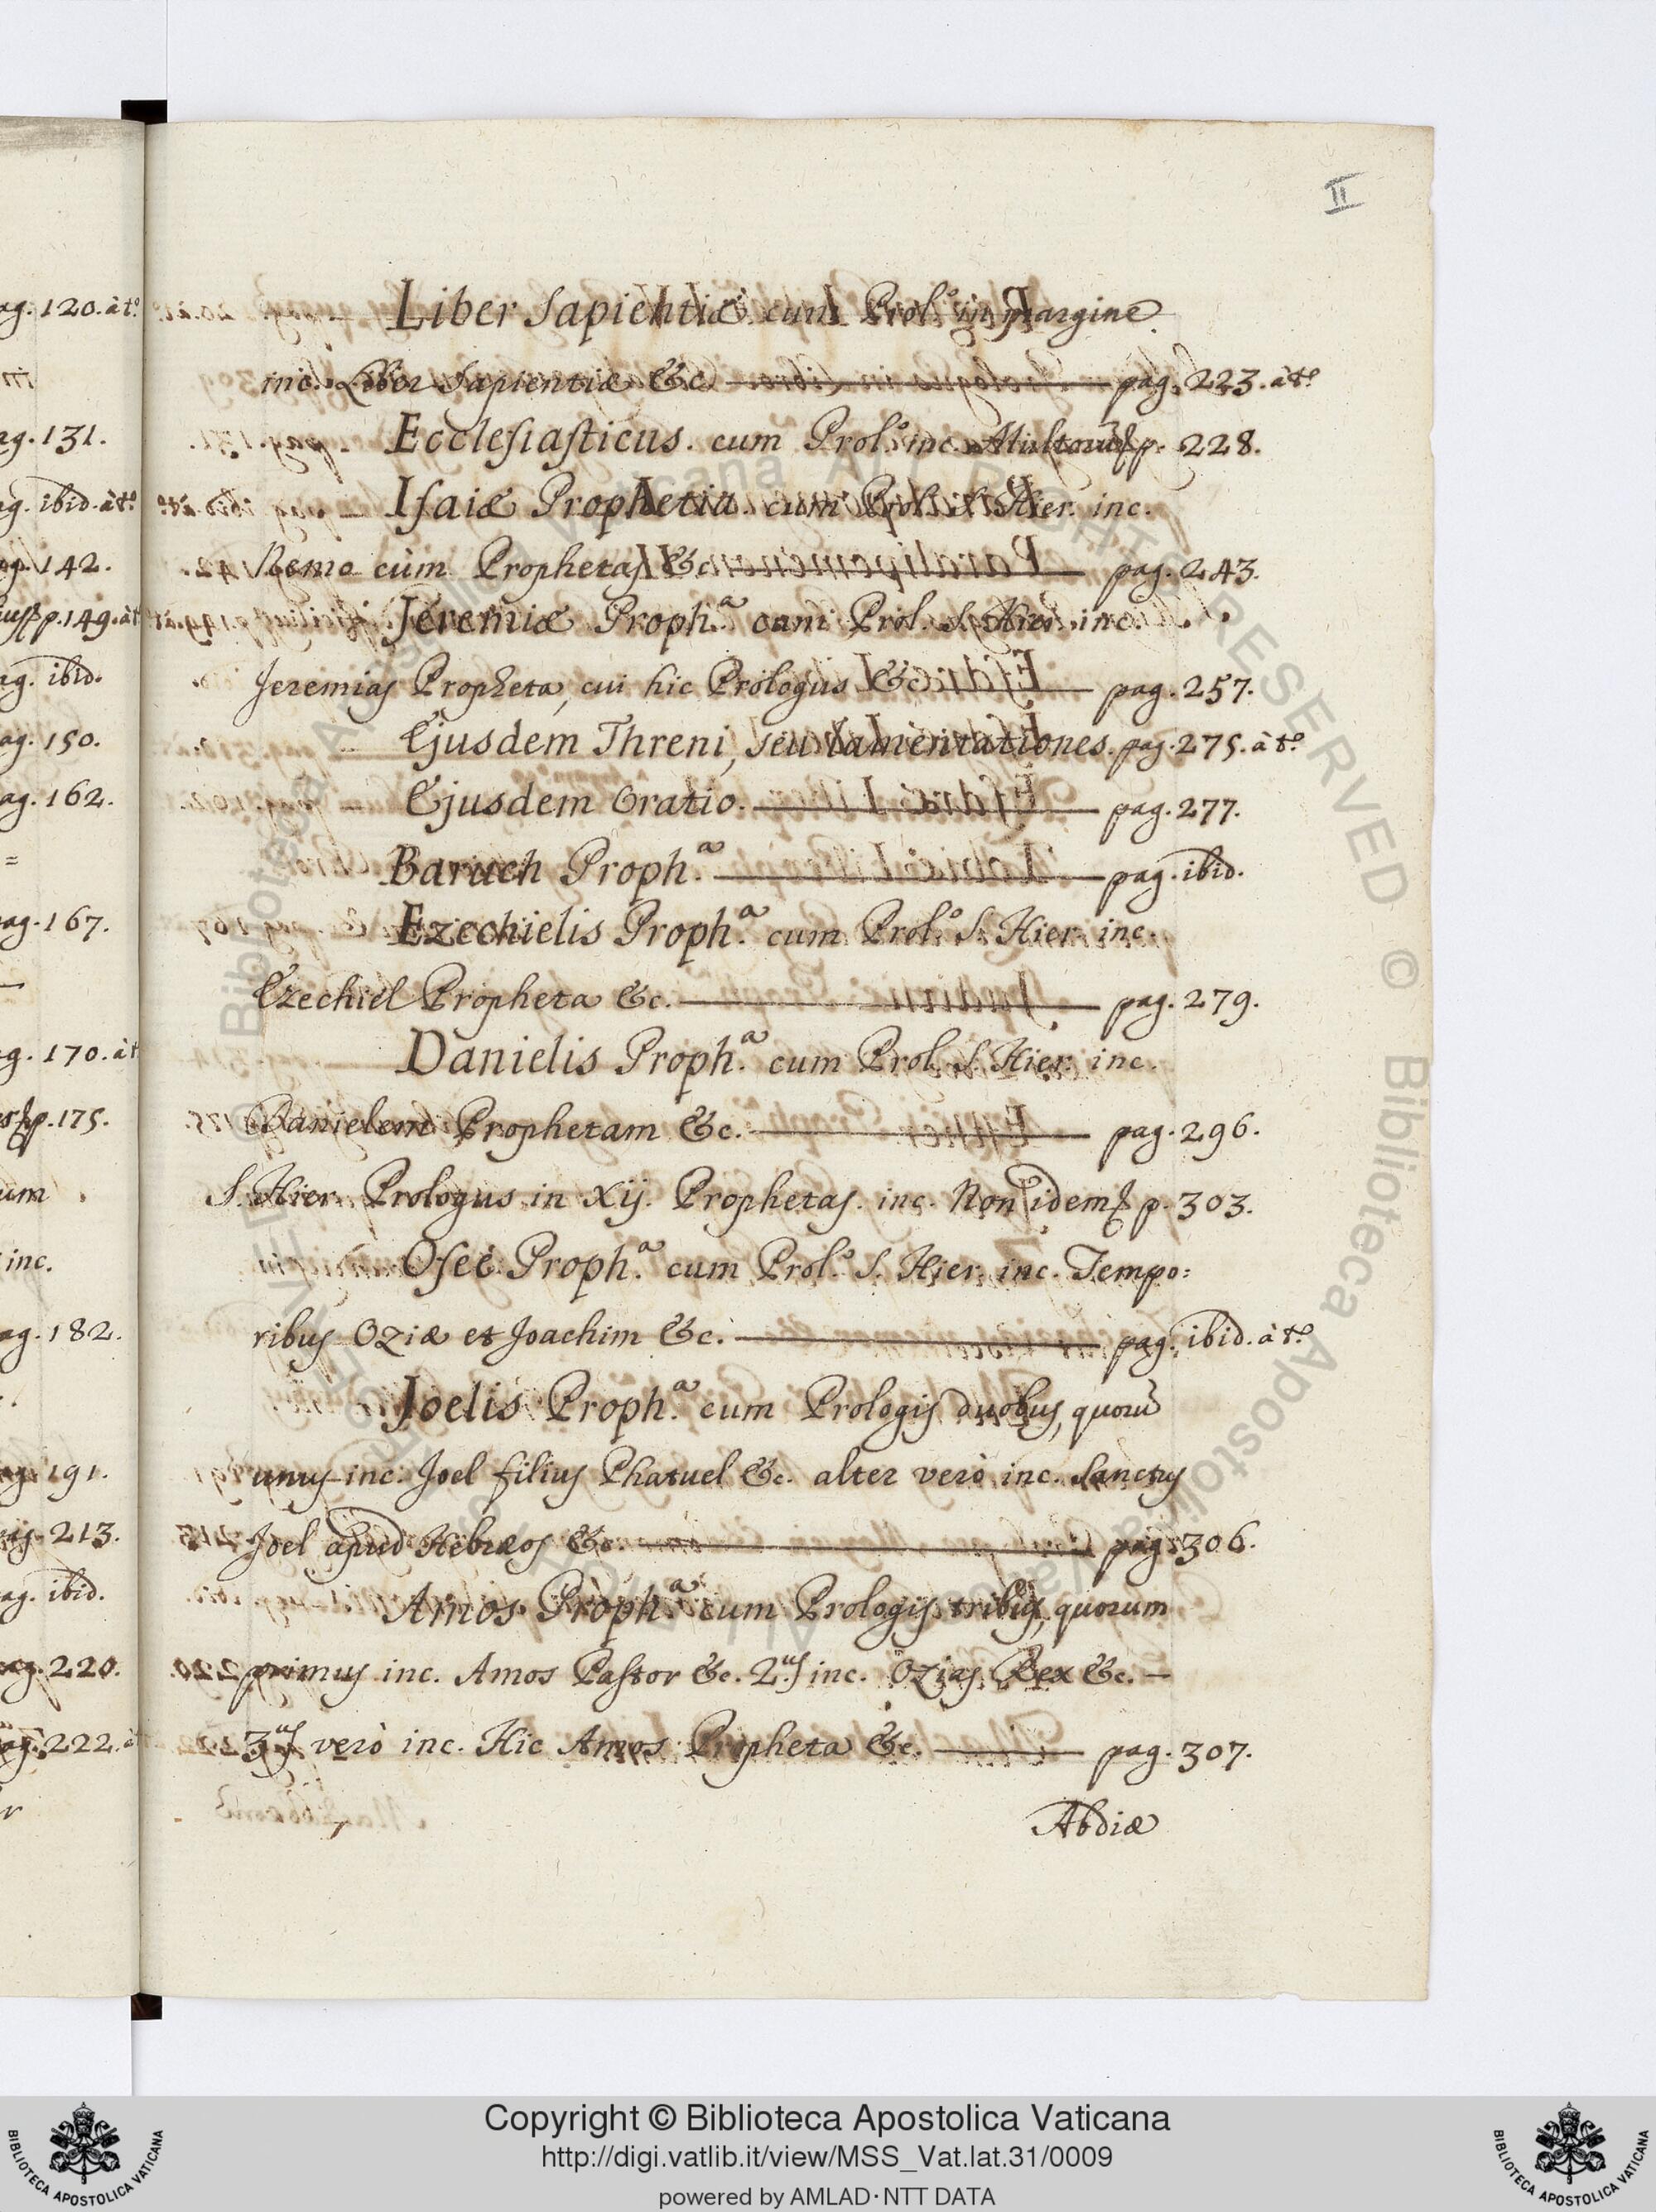 II
Liber Sapientiæ cum Prol.º in margine
inc. Liber Sapientiæ &c. pag. 223. àtº
Ecclesiasticus. cum Prol.º inc. Multorũ p. 228.
Isaiæ Prophetia. cum Prol. S. Hier. inc.
Nemo cùm Prophetas &c. pag. 243.
Jeremiæ Proph.ª cum Prol. S. Hier. inc.
Jeremias Propheta, cui hic Prologus &c. pag. 257.
Ejusdem Threni, seu Lamentationes. pag. 275. àtº
Ejusdem Oratio. pag. 277.
Baruch Proph.ª pag. ibid.
Ezechielis Proph.ª cum Prol.º S. Hier. inc.
Ezechiel Propheta &c. pag. 279.
Danielis Proph.ª cum Prol. S. Hier. inc.
Danielem Prophetam &c. pag. 296.
S. Hier. Prologus in xij. Prophetas. inc. Non idem p. 303.
Oseè Proph.ª cum Prol.º S. Hier. inc. Tempo=
ribus Oziæ et Joachim &c. pag. ibid. àtº
Joelis Proph.ª cum Prologis duobus, quorũ
unus inc. Joel filius Phatuel &c. alter verò inc. Sanctus
Joel apud Hebræos &c. pag. 306.
Amos Proph.ª cum Prologis tribus, quorum
primus inc. Amos Pastor &c. 2.us inc. Ozias Rex &c. —
3.us verò inc. Hic Amos Propheta &c. pag. 307.
Abdiæ
ag. 120. àtº
ag. 131.
ag. ibid. àtº
ag. 142.
p. 149. àt
ag. ibid.
ag. 150.
ag. 162.
=
ag. 167.
g. 170. àt
p. 175.
um
inc.
ag. 182.
ag. 191.
ag. 213.
ag. ibid.
ag. 220.
ag. 222. à
r
© Biblioteca Apostolica Vaticana ALL RIGHTS RESERVED
© Biblioteca Apostolica Vaticana ALL RIGHTS RESERVED
Copyright © Biblioteca Apostolica Vaticana
http://digi.vatlib.it/view/MSS_Vat.lat.31/0009
powered by AMLAD·NTT DATA
BIBLIOTECA APOSTOLICA VATICANA
BIBLIOTECA APOSTOLICA VATICANA